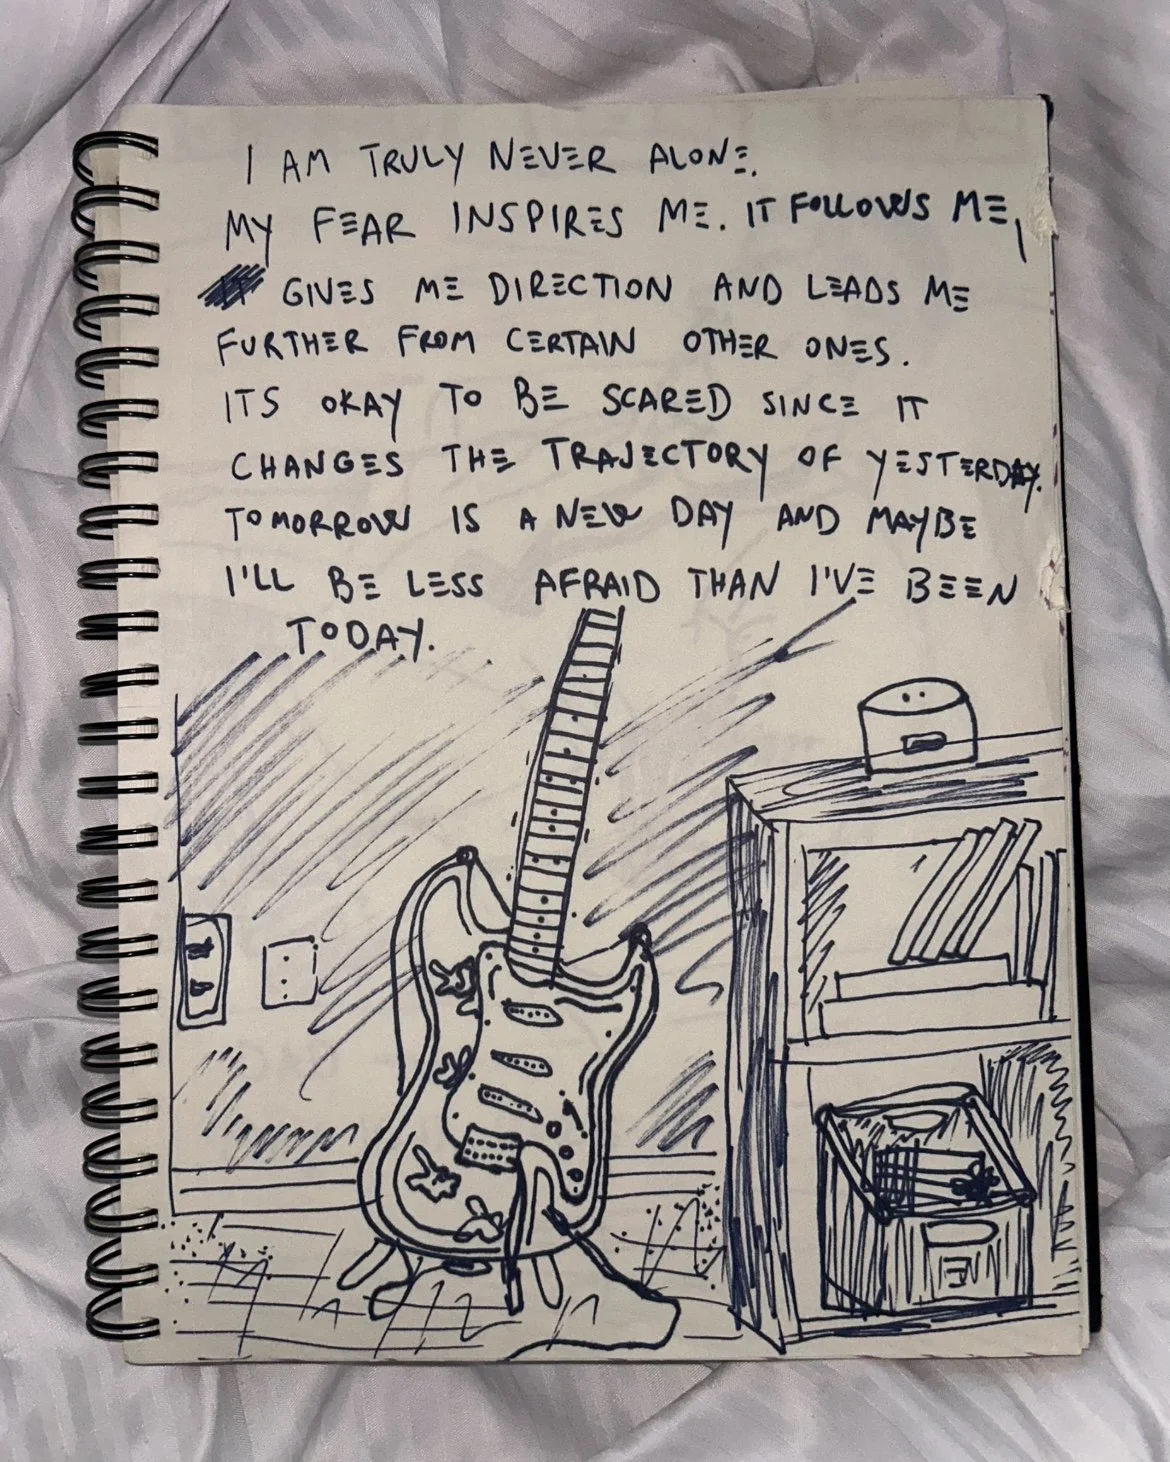 I AM TRULY NEVER ALONE.
MY FEAR INSPIRES ME. IT FOLLOWS ME,
GIVES ME DIRECTION AND LEADS ME
FURTHER FROM CERTAIN OTHER ONES.
ITS OKAY TO BE SCARED SINCE IT
CHANGES THE TRAJECTORY OF YESTERDAY.
TOMORROW IS A NEW DAY AND MAYBE
I'LL BE LESS AFRAID THAN I'VE BEEN
TODAY.